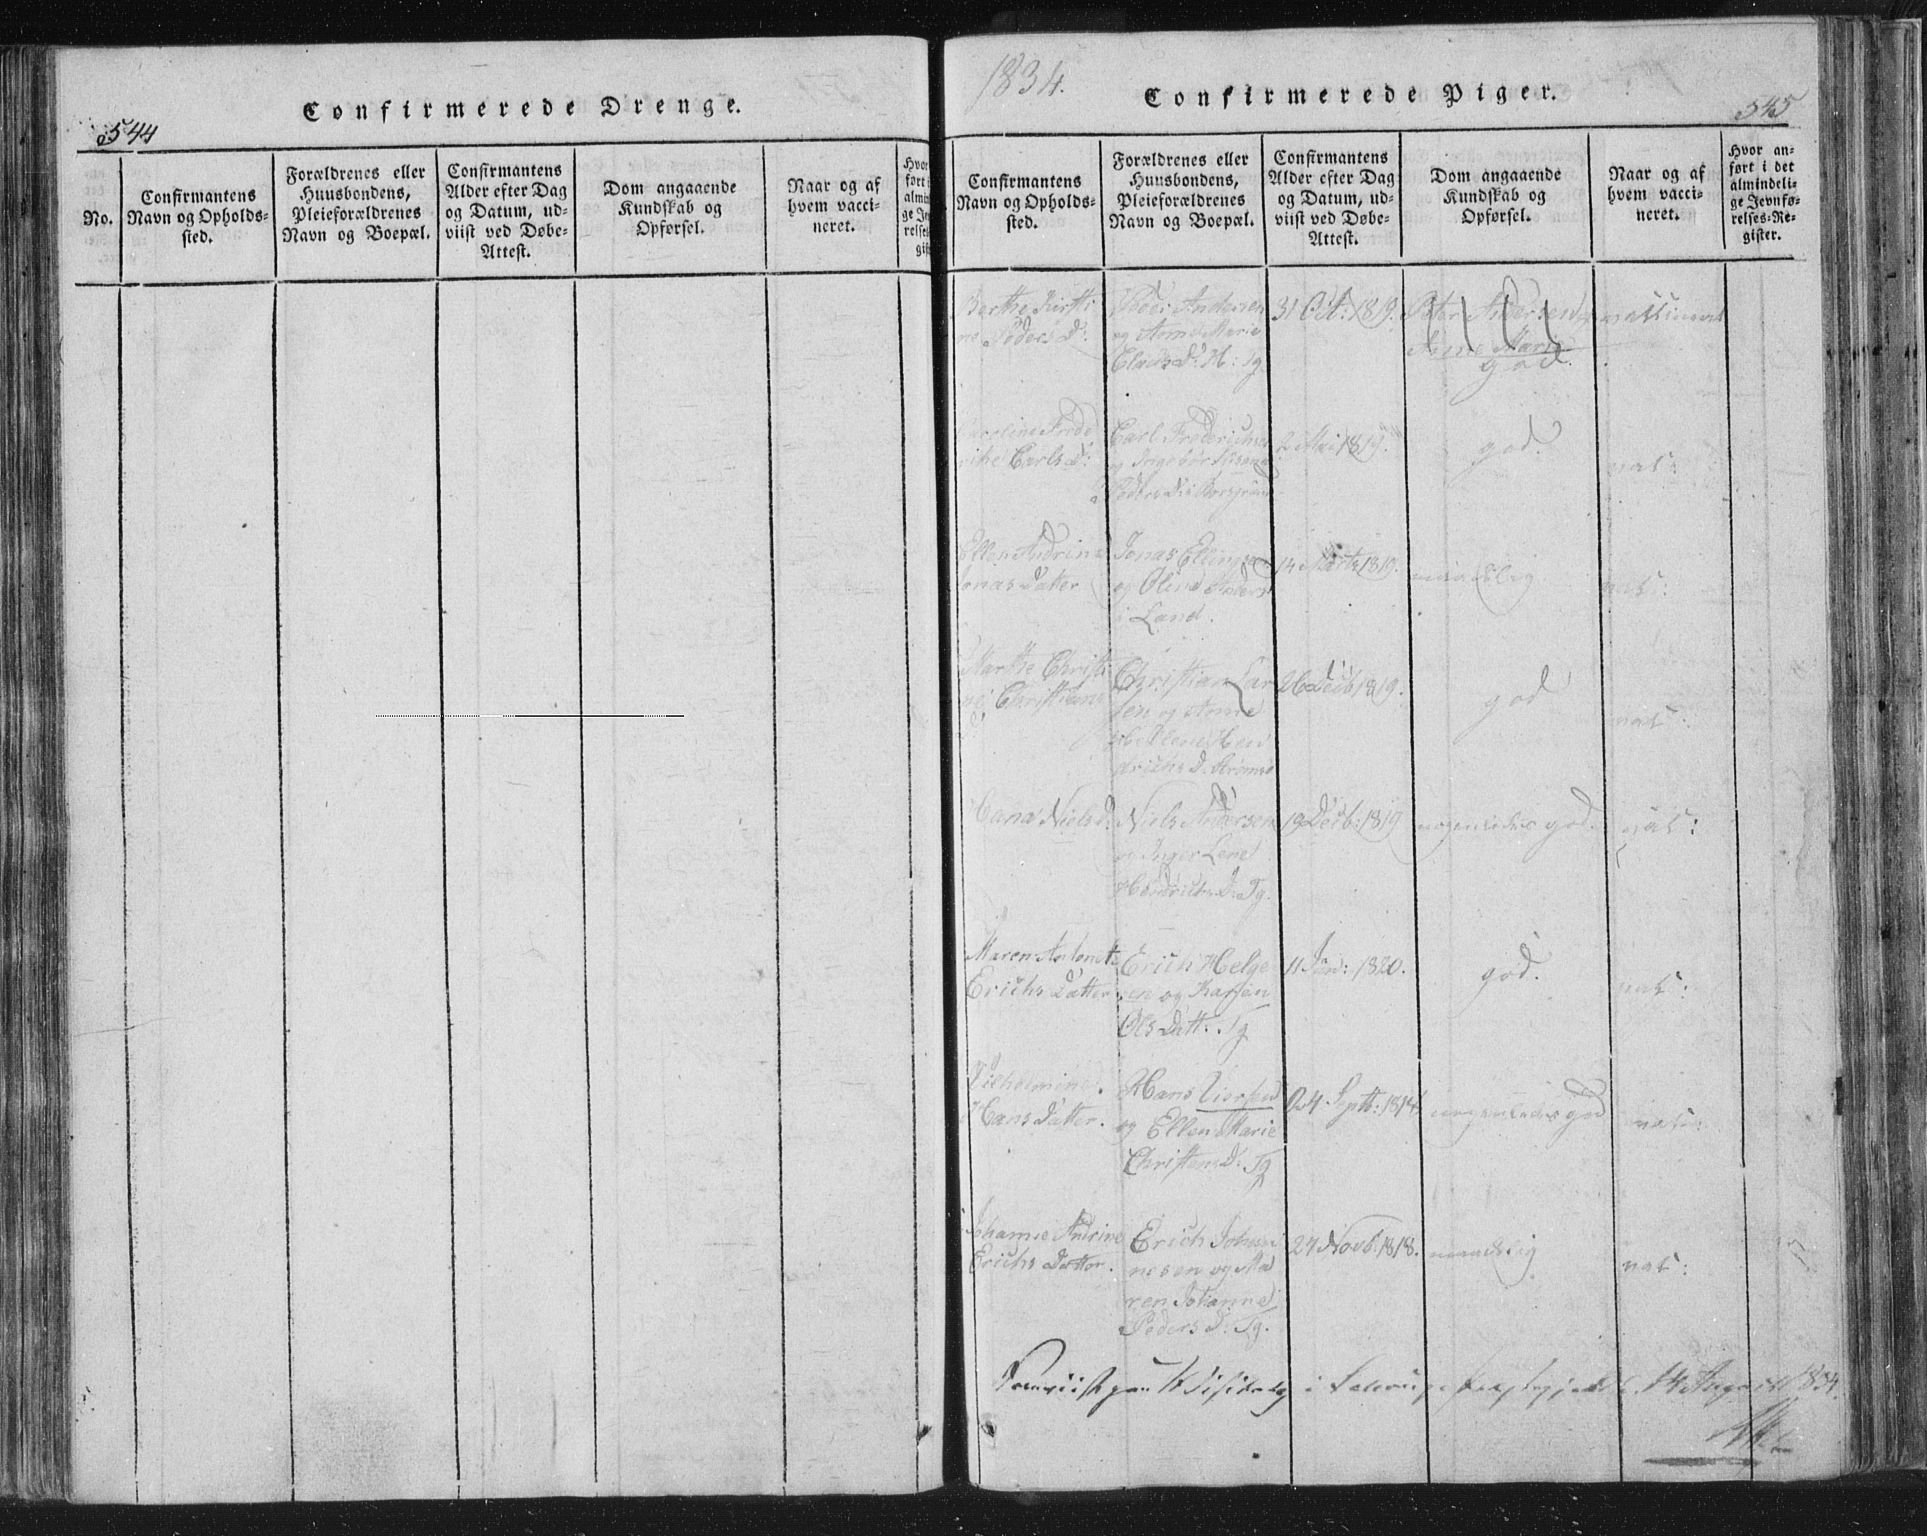 544
Confirmerede Drenge.
No.
Confirmantens
Navn og Opholds-
sted.
Forældrenes eller
Huusbondens,
Pleieforældrenes
Navn og Boepæl.
Confirmantens
Alder efter Dag
og Datum, ud-
viist ved Døbe-
Attest.
Dom angaaende
Kundskab og
Opførsel.
Naar og af
hvem vacci-
neret.
1834.
Confirmerede Piger.
545
Confirmantens
Navn og Opholds-
sted.
Forældrenes eller
Huusbondens,
Pleieforældrenes
Navn og Boepæl.
Confirmantens
Alder efter Dag
og Datum, ud-
viist ved Døbe-
Attest.
Dom angaaende
Kundskab og
Opførsel.
Naar og af
hvem vacci-
neret.
Hvor an-
ført i det
almindeli-
ge Jevnfø-
relses-Re-
gister.
Berthe Kirsti
ne Peders D:
Peder Andersen
og Anne Marie
Claus D: H: Tg
31 Oct: 1819.
Peter Andersen
Anne Marie
god.
Caroline Frede
rike Carls D:
Carl Frederichsen
og Ingebor
Peders D:
2 Mai 1819.
god.
nat:
Ellen Andrine
Jonas Datter
Jonas Ellingsen
og Oline Anders
i Land.
14 Marts 1819.
maadelig
nat:
Marthe Christi
ne Christians
D
Christian Lar
sen og Anne
Helene Hen
drichs D. Strømsø
26 Decb 1819.
god
nat:
Niels D:
Niels Andersen
og Inger Lene
Hendrichs D: Tg.
19 Decb: 1819
nogenledes god.
nat:
Maren Antonette
Erichs Datter
Erich Helge
sen og Karen
Ols Datt: Tg
11 Jan: 1820.
god.
nat:
Vilhelmine
Hans Datter.
Hans Iversen
og Ellen Marie
Christens D: Tg
24 Septb: 1814
nogenledes god
nat:
Johanne Andrine
Erichs Datter.
Erich Johan
nesen og Ma
ren Johanne
Peders D: Tg.
27 Novb: 1818.
maadelig
nat:
Fremviist paa Visitats i 14 August 1834.